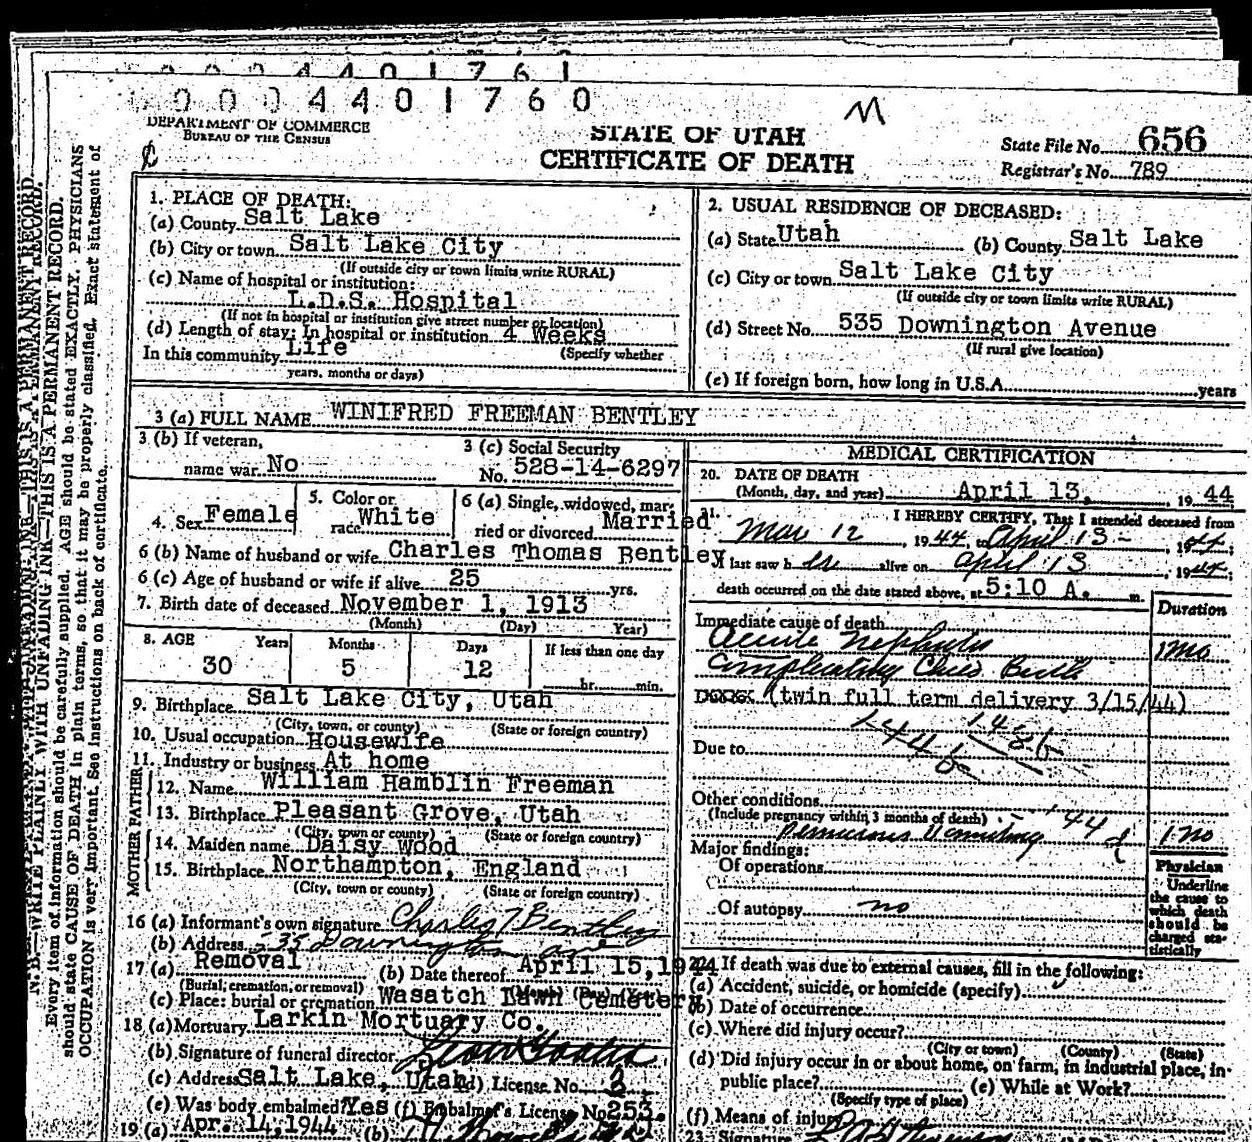 0 0 0 4 4 0 1 7 6 1
0 0 0 4 4 0 1 7 6 0
M
DEPARTMENT OF COMMERCE
BUREAU OF THE CENSUS
STATE OF UTAH
CERTIFICATE OF DEATH
State File No. 656
Registrar's No. 789
N. B.—WRITE PLAINLY WITH UNFADING INK—THIS IS A PERMANENT RECORD.
Every item of information should be carefully supplied. AGE should be stated EXACTLY. PHYSICIANS
should state CAUSE OF DEATH in plain terms, so that it may be properly classified. Exact statement of
OCCUPATION is very important. See instructions on back of certificate.
1. PLACE OF DEATH:
(a) County Salt Lake
(b) City or town Salt Lake City
(If outside city or town limits write RURAL)
(c) Name of hospital or institution:
L.D.S. Hospital
(If not in hospital or institution give street number or location)
(d) Length of stay: In hospital or institution 4 Weeks
In this community Life (Specify whether
years, months or days)
2. USUAL RESIDENCE OF DECEASED:
(a) State Utah (b) County Salt Lake
(c) City or town Salt Lake City
(If outside city or town limits write RURAL)
(d) Street No. 535 Downington Avenue
(If rural give location)
(e) If foreign born, how long in U.S.A. years
3 (a) FULL NAME WINIFRED FREEMAN BENTLEY
3 (b) If veteran,
name war No
3 (c) Social Security
No. 528-14-6297
4. Sex Female
5. Color or
race White
6 (a) Single, widowed, mar-
ried or divorced Married
6 (b) Name of husband or wife Charles Thomas Bentley
6 (c) Age of husband or wife if alive 25 yrs.
7. Birth date of deceased November 1, 1913
(Month) (Day) Year)
8. AGE Years Months Days If less than one day
30 5 12 hr. min.
9. Birthplace Salt Lake City, Utah
(City, town, or county) (State or foreign country)
10. Usual occupation Housewife
11. Industry or business At home
FATHER
12. Name William Hamblin Freeman
13. Birthplace Pleasant Grove, Utah
(City, town or county) (State or foreign country)
MOTHER
14. Maiden name Daisy Wood
15. Birthplace Northampton, England
(City, town or county) (State or foreign country)
16 (a) Informant's own signature Charles T Bentley
(b) Address 535 Downington ave
17 (a) Removal (b) Date thereof April 15, 1944
(Burial, cremation, or removal) (Month) (Day) (Year)
(c) Place: burial or cremation Wasatch Lawn Cemetery
18 (a) Mortuary Larkin Mortuary Co.
(b) Signature of funeral director
(c) Address Salt Lake, Utah (d) License No. 3
(e) Was body embalmed? Yes (f) Embalmer's License No. 253
19 (a) Apr. 14, 1944 (b)
MEDICAL CERTIFICATION
20. DATE OF DEATH
(Month, day, and year) April 13, 1944
21. I HEREBY CERTIFY, That I attended deceased from
Mar 12, 1944, to April 13 -, 1944;
I last saw her alive on April 13, 1944,
death occurred on the date stated above, at 5:10 A. m.
Duration
Immediate cause of death
Acute Nephritis 1 mo
Complicating Child Birth
(twin full term delivery 3/15/44)
Due to
Other conditions
(Include pregnancy within 3 months of death)
Pernicious Vomiting 1 mo
Major findings:
Of operations
Of autopsy no
Physician
Underline
the cause to
which death
should be
charged sta-
tistically
22. If death was due to external causes, fill in the following:
(a) Accident, suicide, or homicide (specify)
(b) Date of occurrence
(c) Where did injury occur?
(City or town) (County) (State)
(d) Did injury occur in or about home, on farm, in industrial place, in
public place? (e) While at Work?
(Specify type of place)
(f) Means of injury
23. Signature